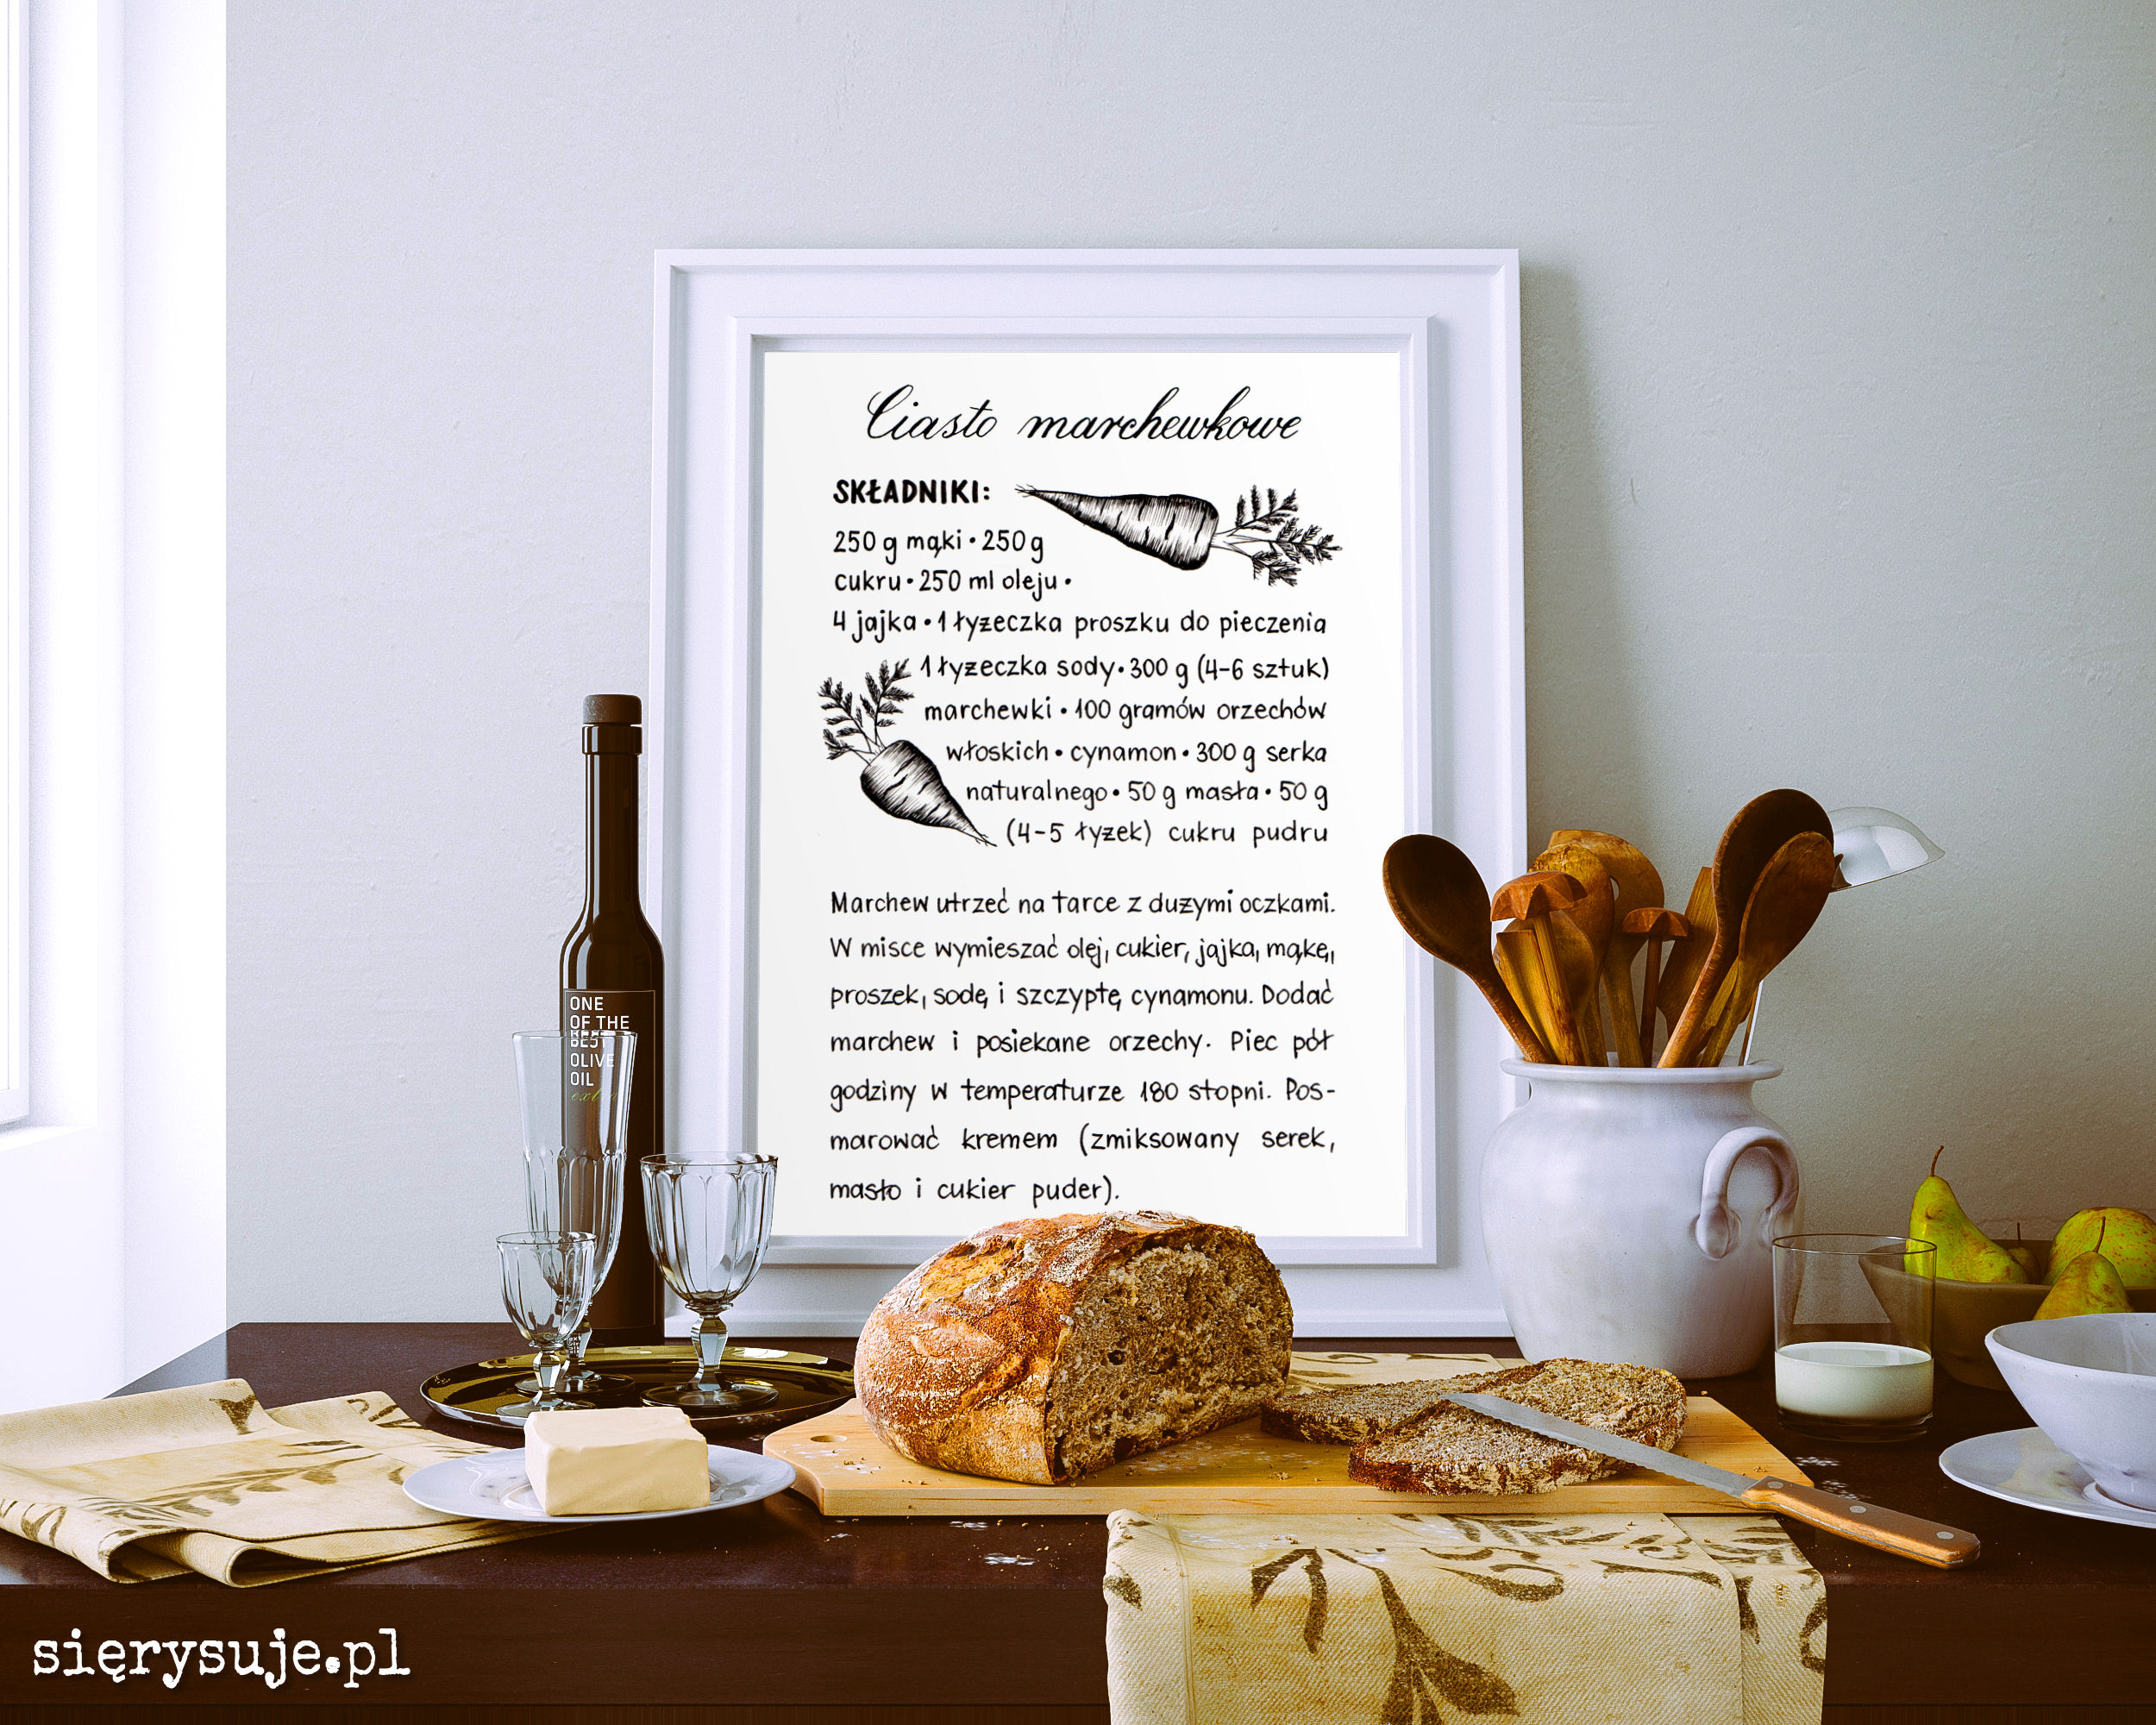 Ciasto marchewkowe
SKŁADNIKI:
250 g mąki • 250 g
cukru • 250 ml oleju •
4 jajka • 1 łyżeczka proszku do pieczenia
1 łyżeczka sody • 300 g (4-6 sztuk)
marchewki • 100 gramów orzechów
włoskich • cynamon • 300 g serka
naturalnego • 50 g masła • 50 g
(4-5 łyżek) cukru pudru
Marchew utrzeć na tarce z dużymi oczkami.
W misce wymieszać olej, cukier, jajka, mąkę,
proszek, sodę i szczyptę cynamonu. Dodać
marchew i posiekane orzechy. Piec pół
godziny w temperaturze 180 stopni. Pos-
marować kremem (zmiksowany serek,
masło i cukier puder).
ONE
OF THE
BEST
OLIVE
OIL
extra
sięrysuje.pl